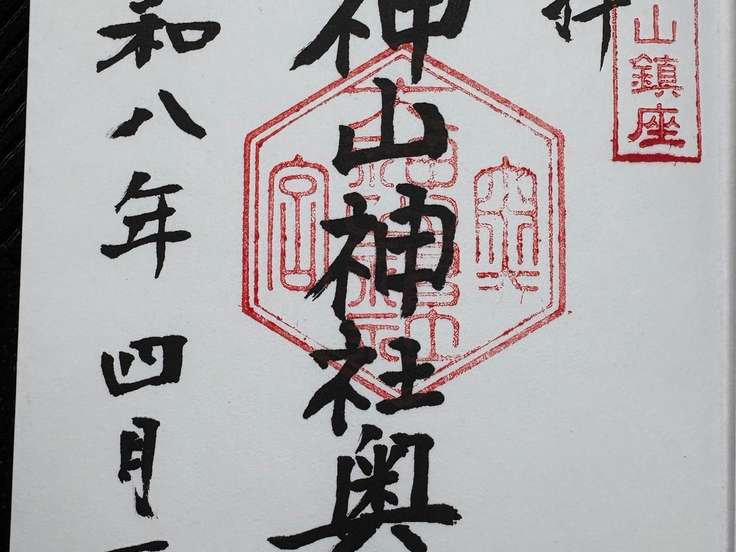 山鎮座
神山神社奥
奥
宮
和八年四月